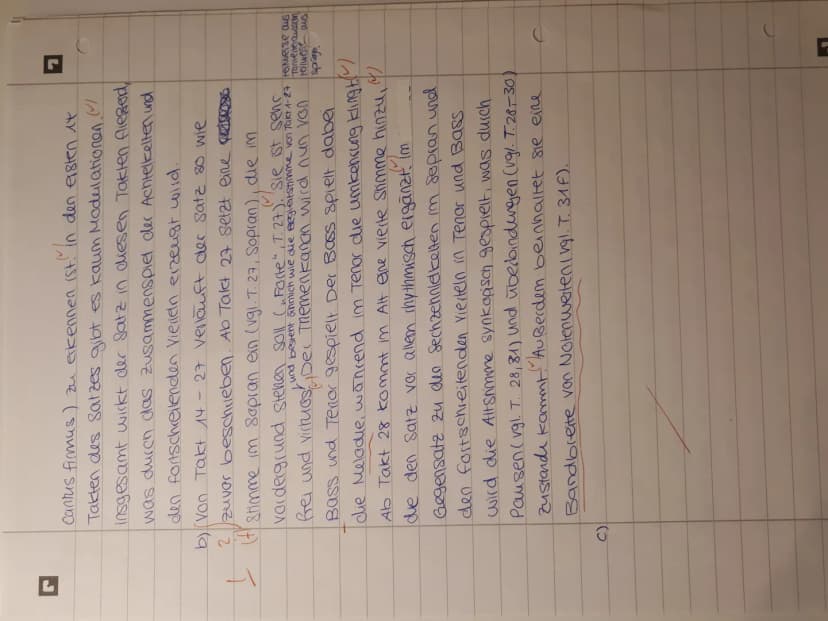 cantus firmus) zu erkennen ist. (✓) In den ersten 14
Takten des Satzes gibt es kaum Modulationen. (✓)
Insgesamt wirkt der Satz in diesen Takten fließend,
was durch das Zusammenspiel der Achtelketten und
den fortschreitenden Vierteln erzeugt wird.
b) Von Takt 14 - 27 verläuft der Satz so wie
zuvor beschrieben. Ab Takt 27 setzt eine
Stimme im Sopran ein (vgl. T. 27, Sopran), die im
Vordergrund stehen soll („Forte", T. 27). (✓) Sie ist sehr
und besteht ähnlich wie die Begleitstimme von Takt 1-27
frei und virtuos. (✓) Der Themenkanon wird nun von
Bass und Tenor gespielt. Der Bass spielt dabei
die Melodie, während im Tenor die Umkehrung klingt. (✓)
Ab Takt 28 kommt im Alt eine vierte Stimme hinzu, (✓)
die den Satz vor allem rhythmisch ergänzt. (✓) Im
Gegensatz zu den Sechzehntelketten im Sopran und
den fortschreitenden Vierteln in Tenor und Bass
wird die Altstimme synkopisch gespielt, was durch
Pausen (vgl. T. 28, 31) und Überbindungen (vgl. T. 28-30)
zustande kommt. (✓) Außerdem beinhaltet sie eine
Bandbreite von Notenwerten (vgl. T. 31f).
c)